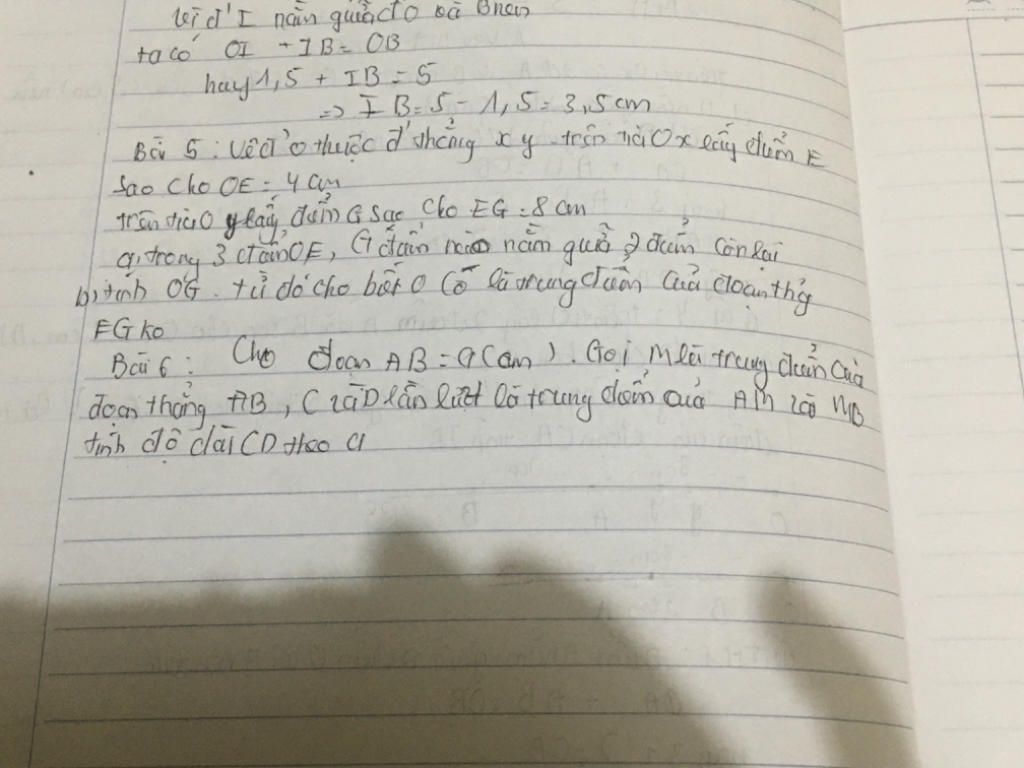 Vì đ' I nằm giữa O và B nên
ta có OI + IB = OB
hay 1,5 + IB = 5
=> IB = 5 - 1,5 = 3,5 cm
Bài 5 : Vẽ đ' O thuộc đ' thẳng xy trên tia Ox lấy điểm E
sao cho OE = 4 cm
trên tia Oy lấy điểm G sao cho EG = 8 cm
a, trong 3 điểm OE, G điểm nào nằm giữa 2 điểm còn lại
b, tính OG. từ đó cho biết O có là trung điểm của đoạn thẳg
EG ko
Bài 6 : Cho đoạn AB = a (cm). Gọi M là trung điểm của
đoạn thẳng AB, C và D lần lượt là trung điểm của AM và MB
tính độ dài CD theo a